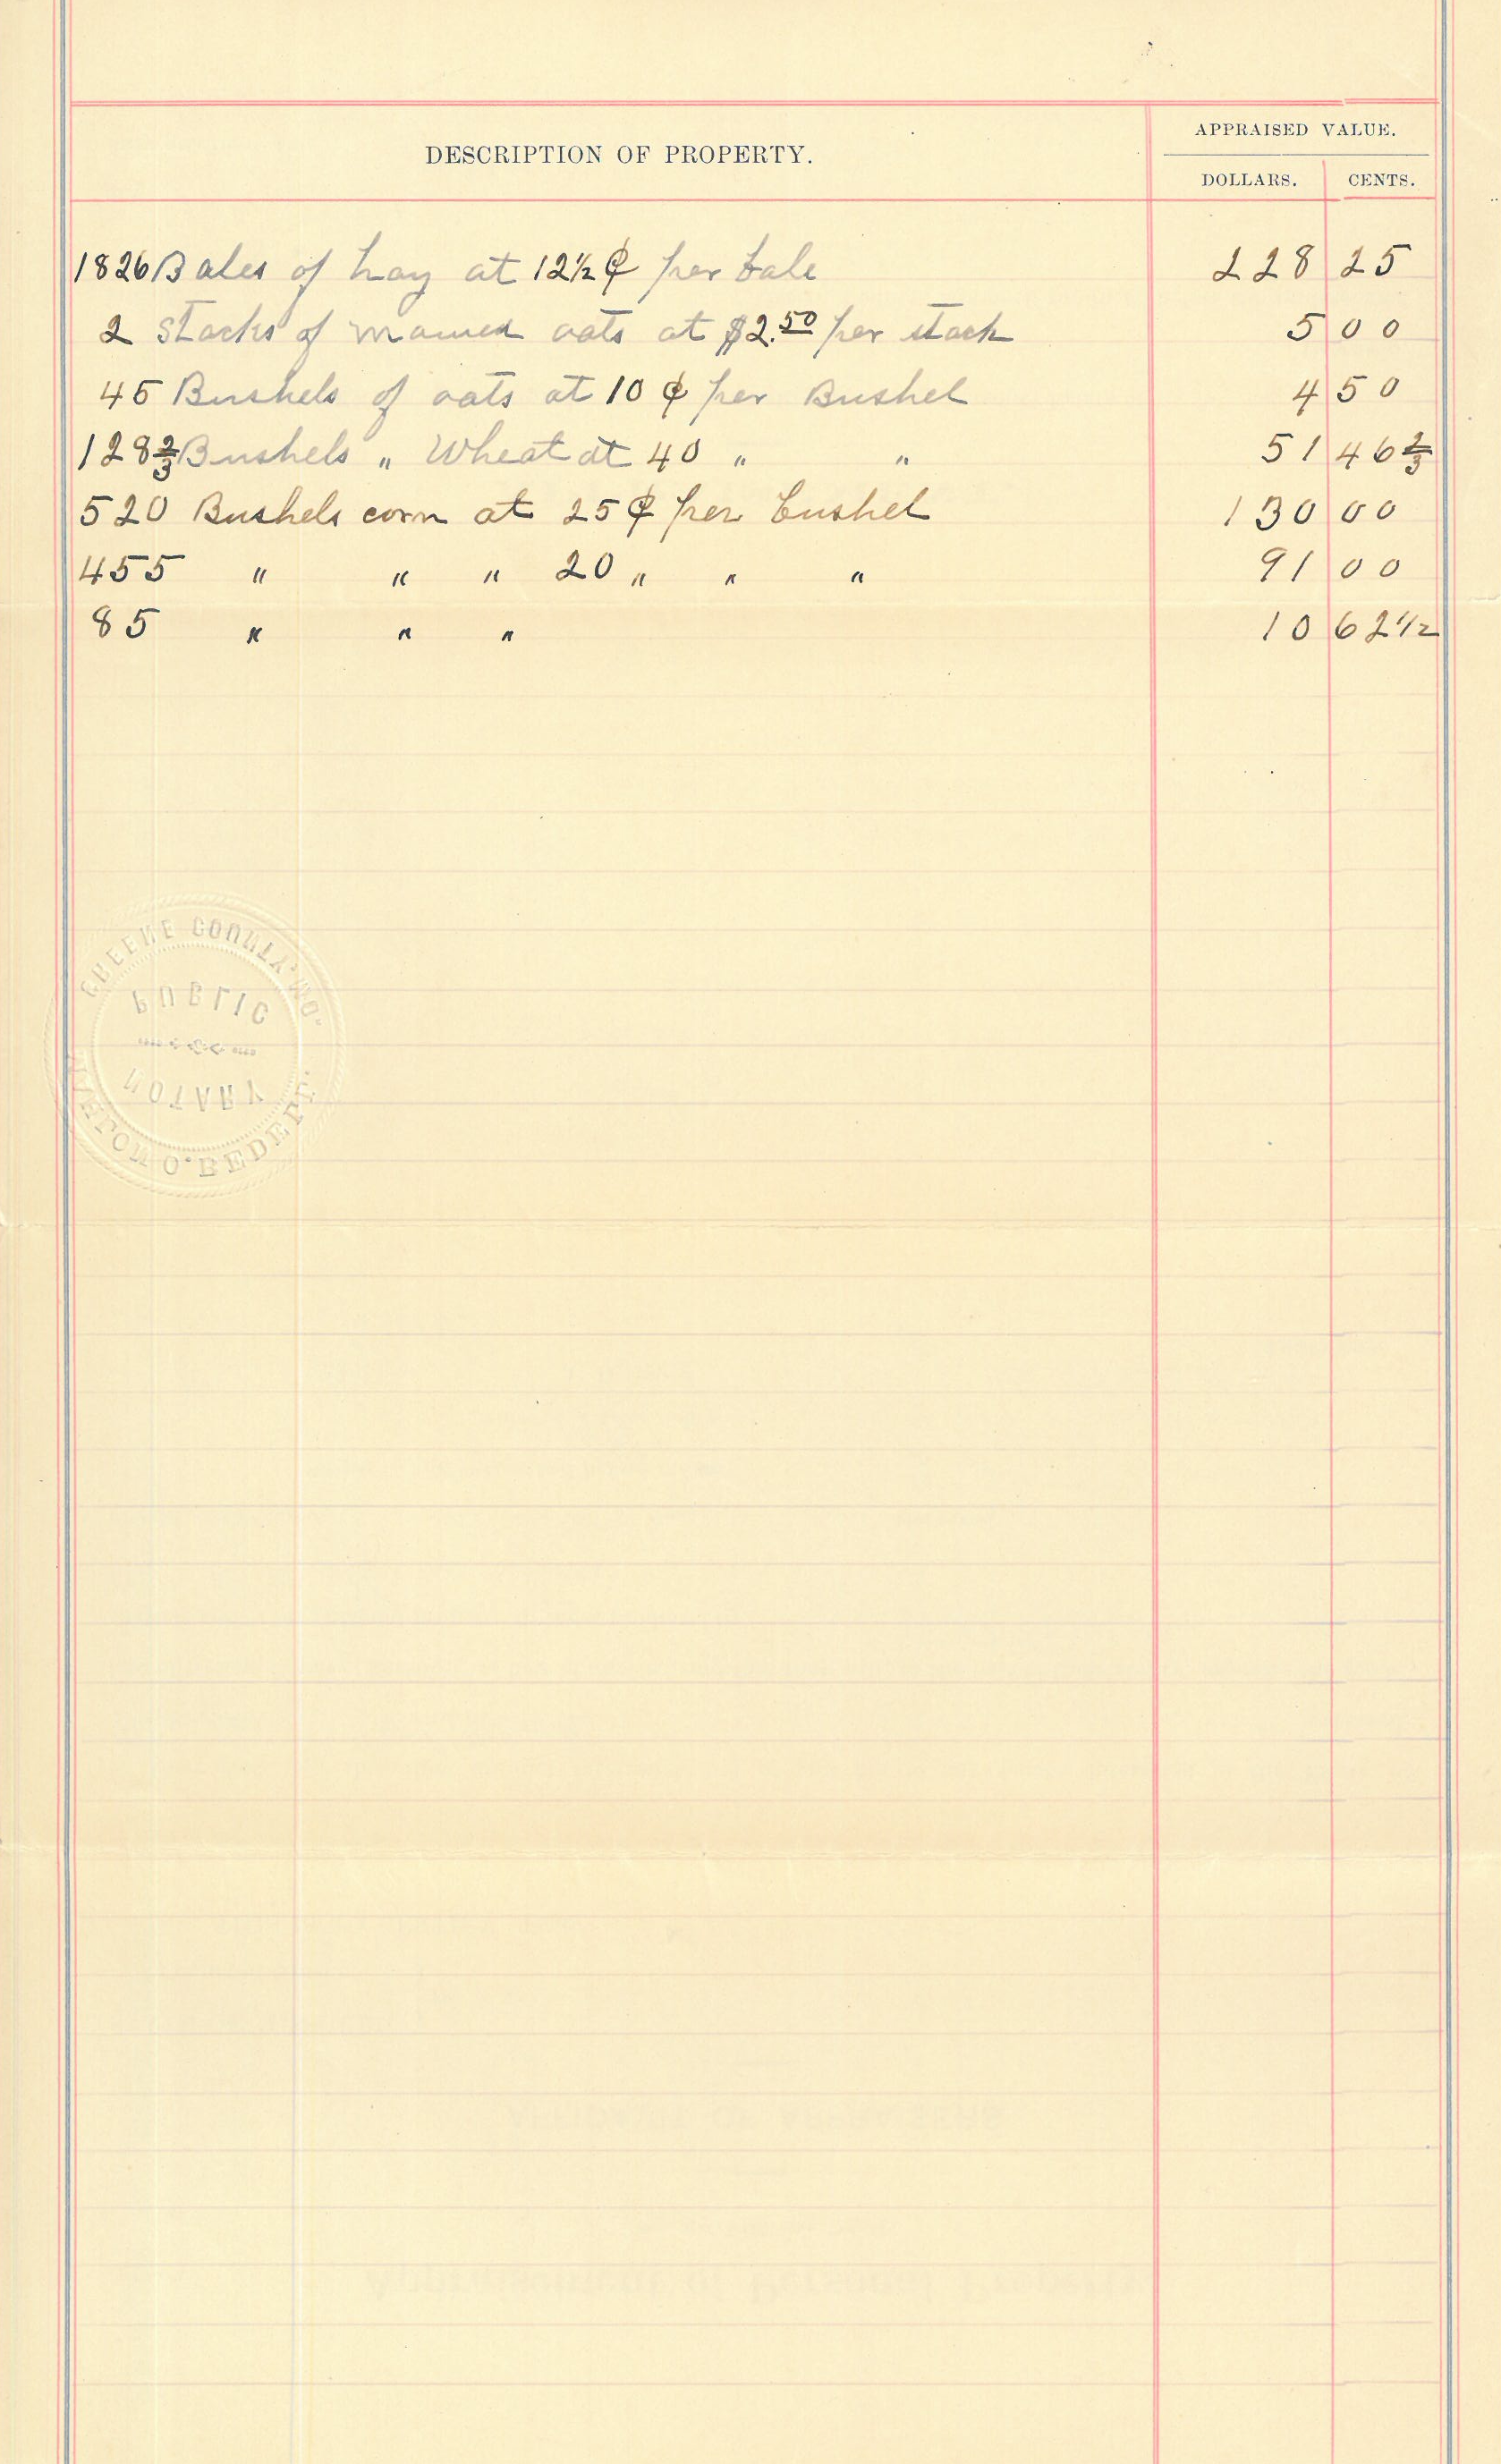 DESCRIPTION OF PROPERTY.
APPRAISED VALUE.
DOLLARS. CENTS.
1826 Bales of hay at 12½ ¢ per bale 228 25
2 Stacks of mowed oats at $2.50 per stack 5 00
45 Bushels of oats at 10 ¢ per Bushel 4 50
128⅔ Bushels " Wheat at 40 " " 51 46⅔
520 Bushels corn at 25 ¢ per bushel 130 00
455 " " " 20 " " " 91 00
85 " " " 10 62½
GREENE COUNTY, MO.
PUBLIC
NOTARY